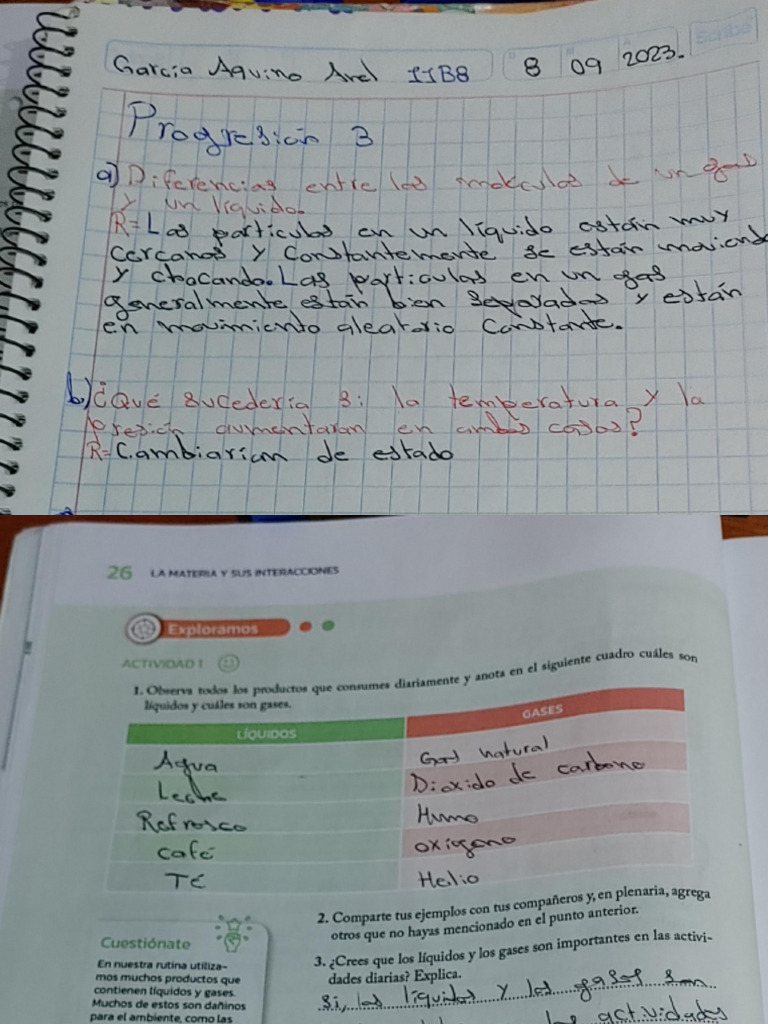 Scribe
García Aquino Arel IIB8 8 09 2023.
Progresión 3
a) Diferencias entre las moleculas de un gas
y un líquido.
R= Las particulas en un líquido están muy
cercanas y Constantemente se están moviendo
y chocando. Las particulas en un gas
generalmente están bien separadas y están
en movimiento aleatorio constante.
b) ¿Qué sucedería si la temperatura y la
presión aumentaran en ambos casos?
R= Cambiarian de estado
26 LA MATERIA Y SUS INTERACCIONES
Exploramos
ACTIVIDAD 1
1. Observa todos los productos que consumes diariamente y anota en el siguiente cuadro cuáles son
líquidos y cuáles son gases.
LÍQUIDOS GASES
Agua Gas natural
Leche Dioxido de carbono
Refresco Humo
café oxigeno
Té Helio
2. Comparte tus ejemplos con tus compañeros y, en plenaria, agrega
otros que no hayas mencionado en el punto anterior.
3. ¿Crees que los líquidos y los gases son importantes en las activi-
dades diarias? Explica.
Si, los líquidos y los gases son
actividades
Cuestiónate
En nuestra rutina utiliza-
mos muchos productos que
contienen líquidos y gases.
Muchos de estos son dañinos
para el ambiente, como las